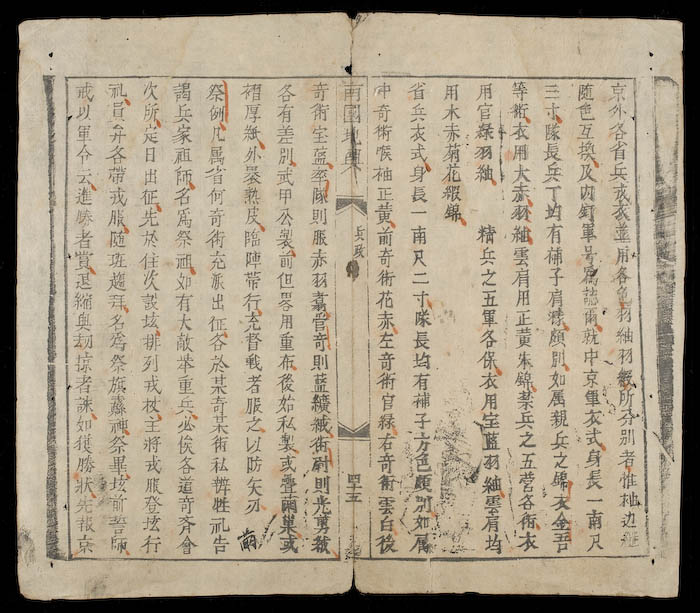 京外各省兵戎衣並用各色羽紬羽緞所分別者惟袖边
随色互換及内釘軍号為誌爾就中京軍衣式身長一南尺
三寸隊長兵丁均有補子肩顔別如属親兵之錦衣金吾
等衛衣用大赤羽紬雲肩用正黄朱錦禁兵之五營各衛衣
用官綠羽紬 精兵之五軍各保衣用宝藍羽紬雲肩均
用木赤菊花緞錦
省兵衣式身長一南尺二寸隊長均有補子方色顔別如属
中奇衛喉袖正黄前奇術花赤左奇術官緑右奇術雲白後
南國地輿 兵政 四十五
奇術宝藍率隊則服赤羽翥管奇則藍纊緘術尉則光剪絨
各有差別武甲公製前但畧用重布後始私製或疊両巢或
褶厚紙外裹熟皮臨陣帶行充督戰者服之以防矢刃
祭例凡属省何奇術充派出征各於某奇某術私辨牲礼告
謁兵家祖師名為祭祖如有大敵举重兵必俟各道奇齐會
次所定日出征先於住次設垓排列戎杖主將戎服登垓行
礼員弁各帶戎服随班趨拜名為祭旗纛神祭畢垓前誓師
戒以軍令云進勝者賞退縮與刼掠者誅如獲勝狀先報京